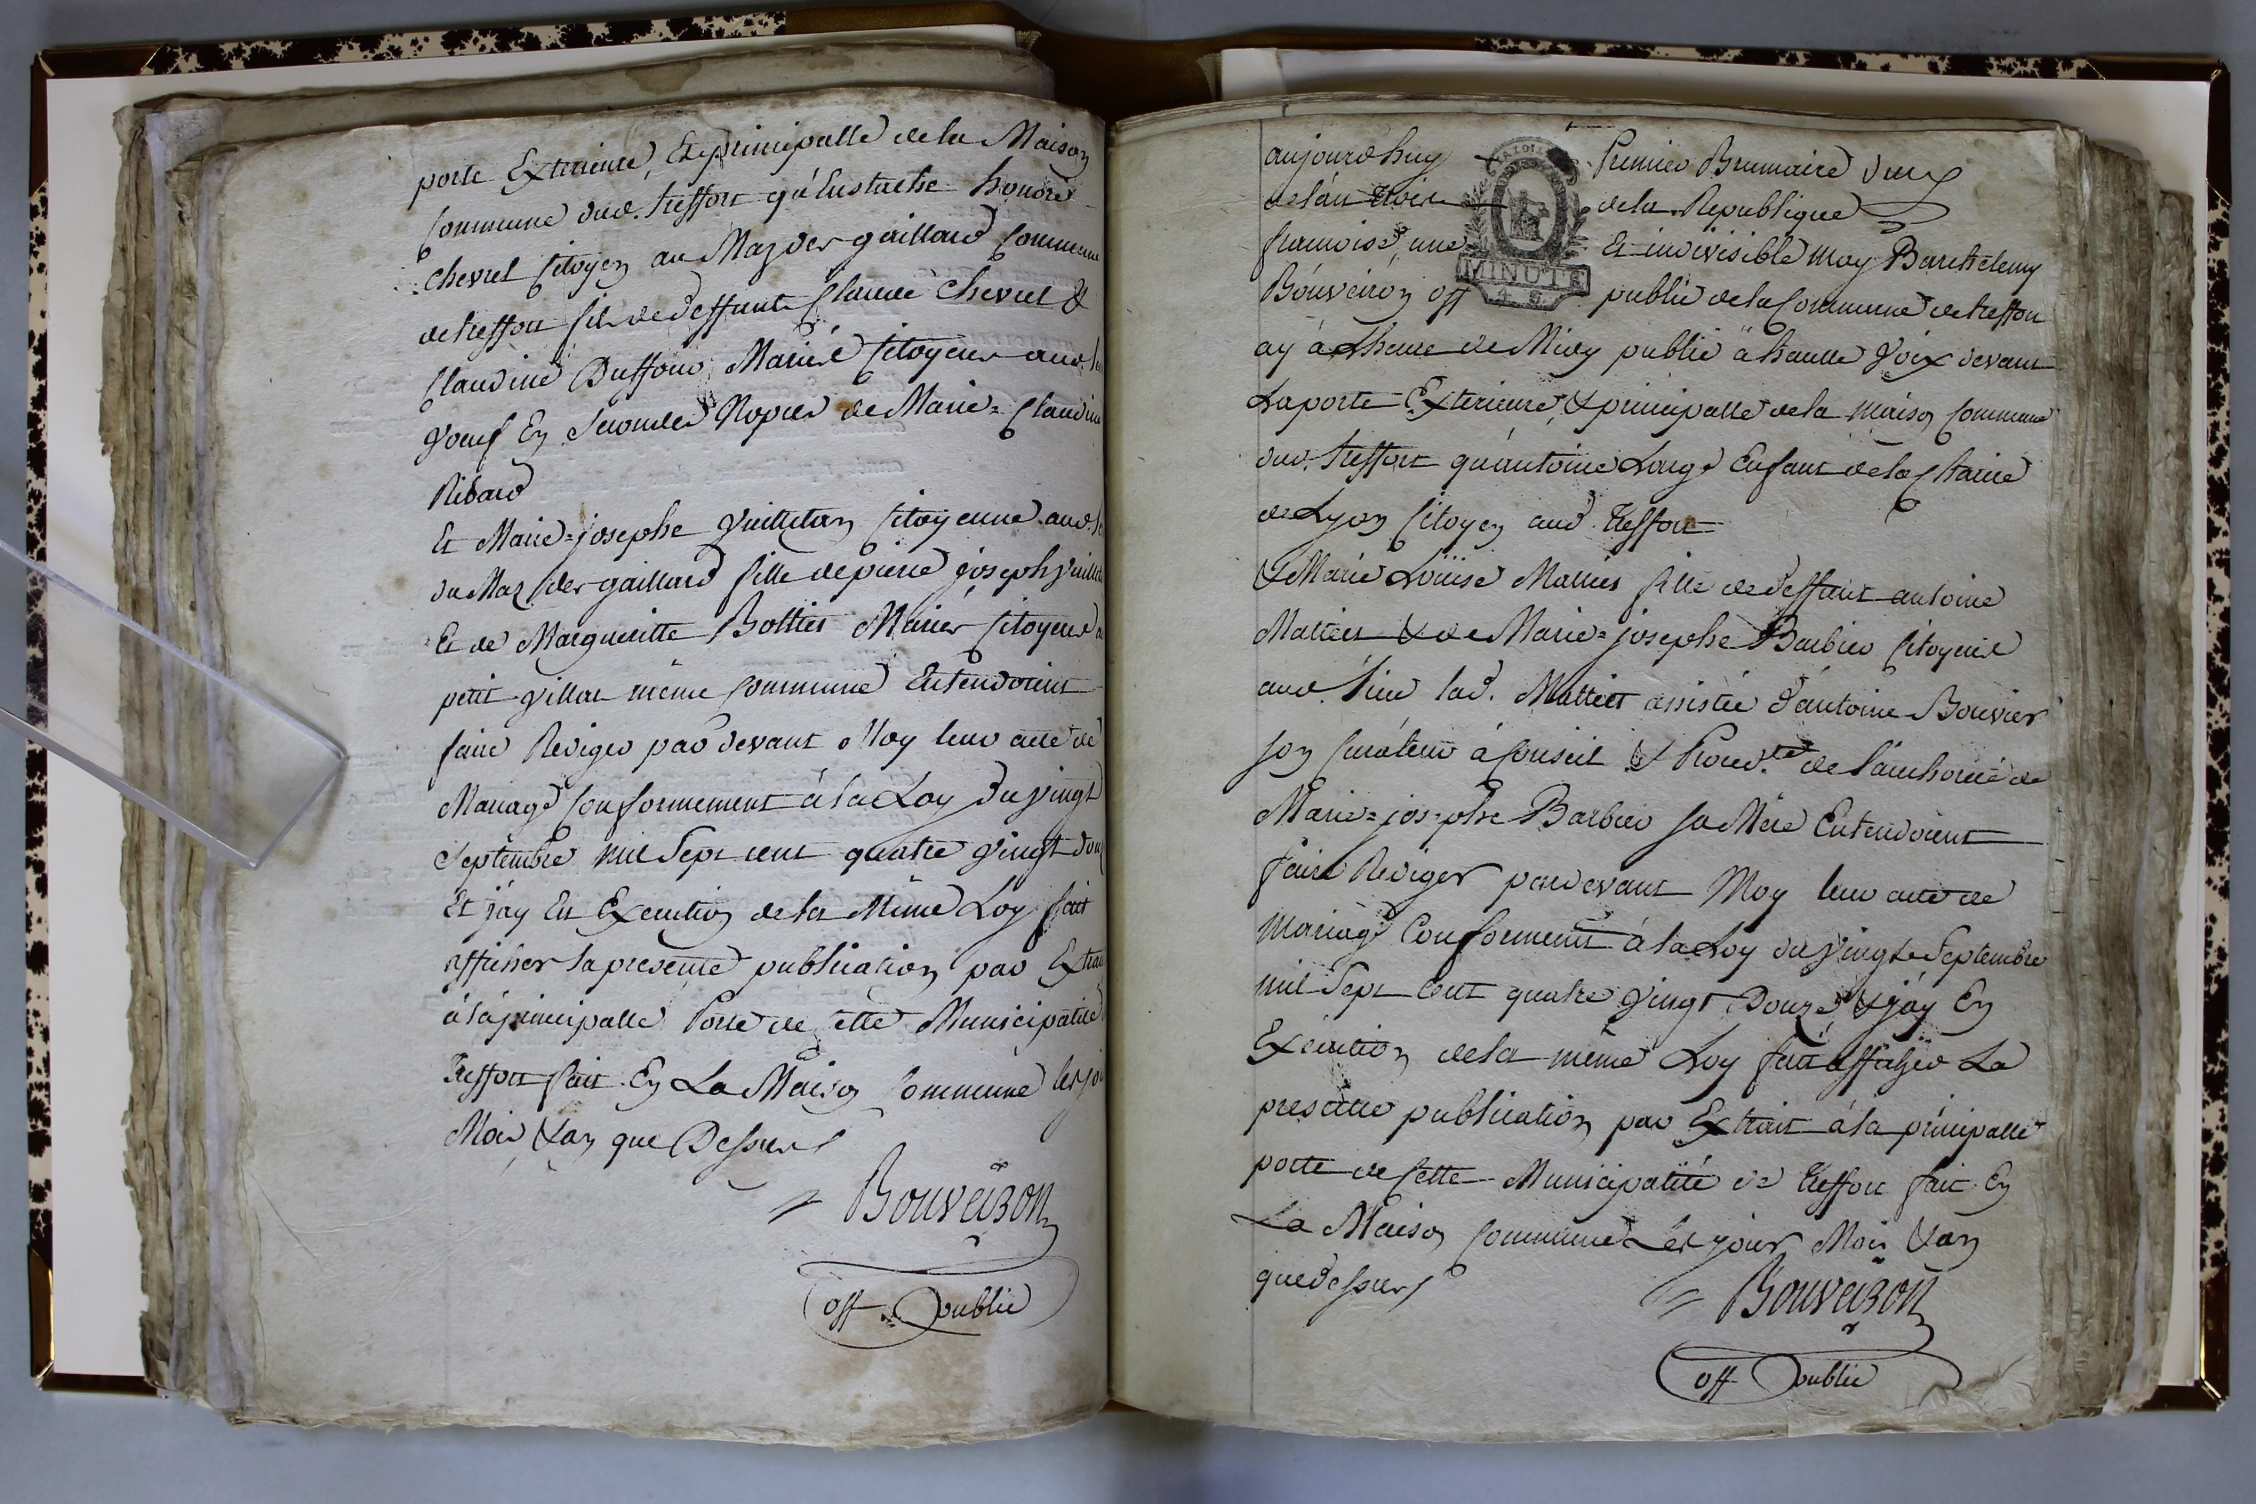 porte Exterieure, Et principalle de la Maison
Commune dud. treffort qu'Eustache honoré
chevrel Citoyen au Maz des gaillard Commune
de treffort fils de deffunts Claude Chevrel &
Claudine Duffour Mariés Citoyens aud.
Voeuf En secondes Nopces de Marie=Claudine
Ribard
Et Marie=josephe Vuilletan Citoyenne aud.
du Maz des gaillard fille de pierre joseph
Et de Marguerite Bottier Mariés Citoyens
petit Villar même Commune Entendoient
faire Rediger par devant Moy leur acte de
Mariage Conformement à la Loy du Vingt
Septembre mil Sept cent quatre Vingt douze
Et j'ay En Execution de la Même Loy fait
afficher la presente publication par Extrait
à la principalle Porte de cette Municipalité
Treffort fait En La Maison Commune les jour
Mois & an que Dessus
Bouveiron
off. Public
aujourd'huy Premier Brumaire
de l'an trois de la Republique
francoise, une Et indivisible Moy Barthelemy
MINUTE
Bouveiron off public de la Commune de treffort
ay à Lheure de Midy publié à haulte Voix devant
La porte Exterieure, & principalle de la Maison Commune
dud. treffort qu'antoine Large Enfant de la Charité
de Lyon Citoyen aud. treffort
& Marie Loüise Mattier fille de deffunt antoine
Mattier & de Marie=josephe Barbier Citoyens
aud. lieu lad. Mattier assistée d'antoine Bouvier
son Curateur à Conseil & Proced.te de l'authorité de
Marie=josephe Barbier sa Mère Entendoient
faire Rediger pardevant Moy leur acte de
Mariage Conformement à la Loy du Vingt Septembre
mil Sept Cent quatre Vingt Douze & j'ay En
Execution de la même Loy fait afficher La
presente publication par Extrait à la principalle
porte de Cette Municipalité de treffort fait En
La Maison Commune Les jour Mois & an
que dessus
Bouveiron
off Public